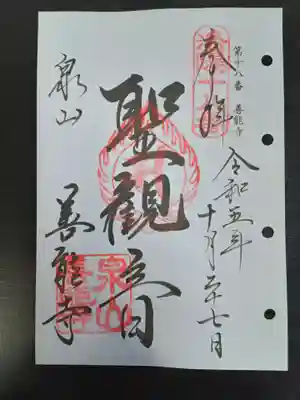 第十八番 善能寺
奉拝
令和五年
十月二十七日
聖観音
泉山
善能寺